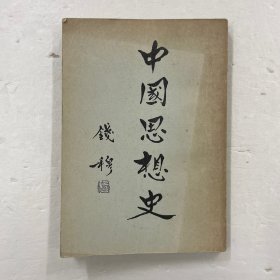 中國思想史
錢穆